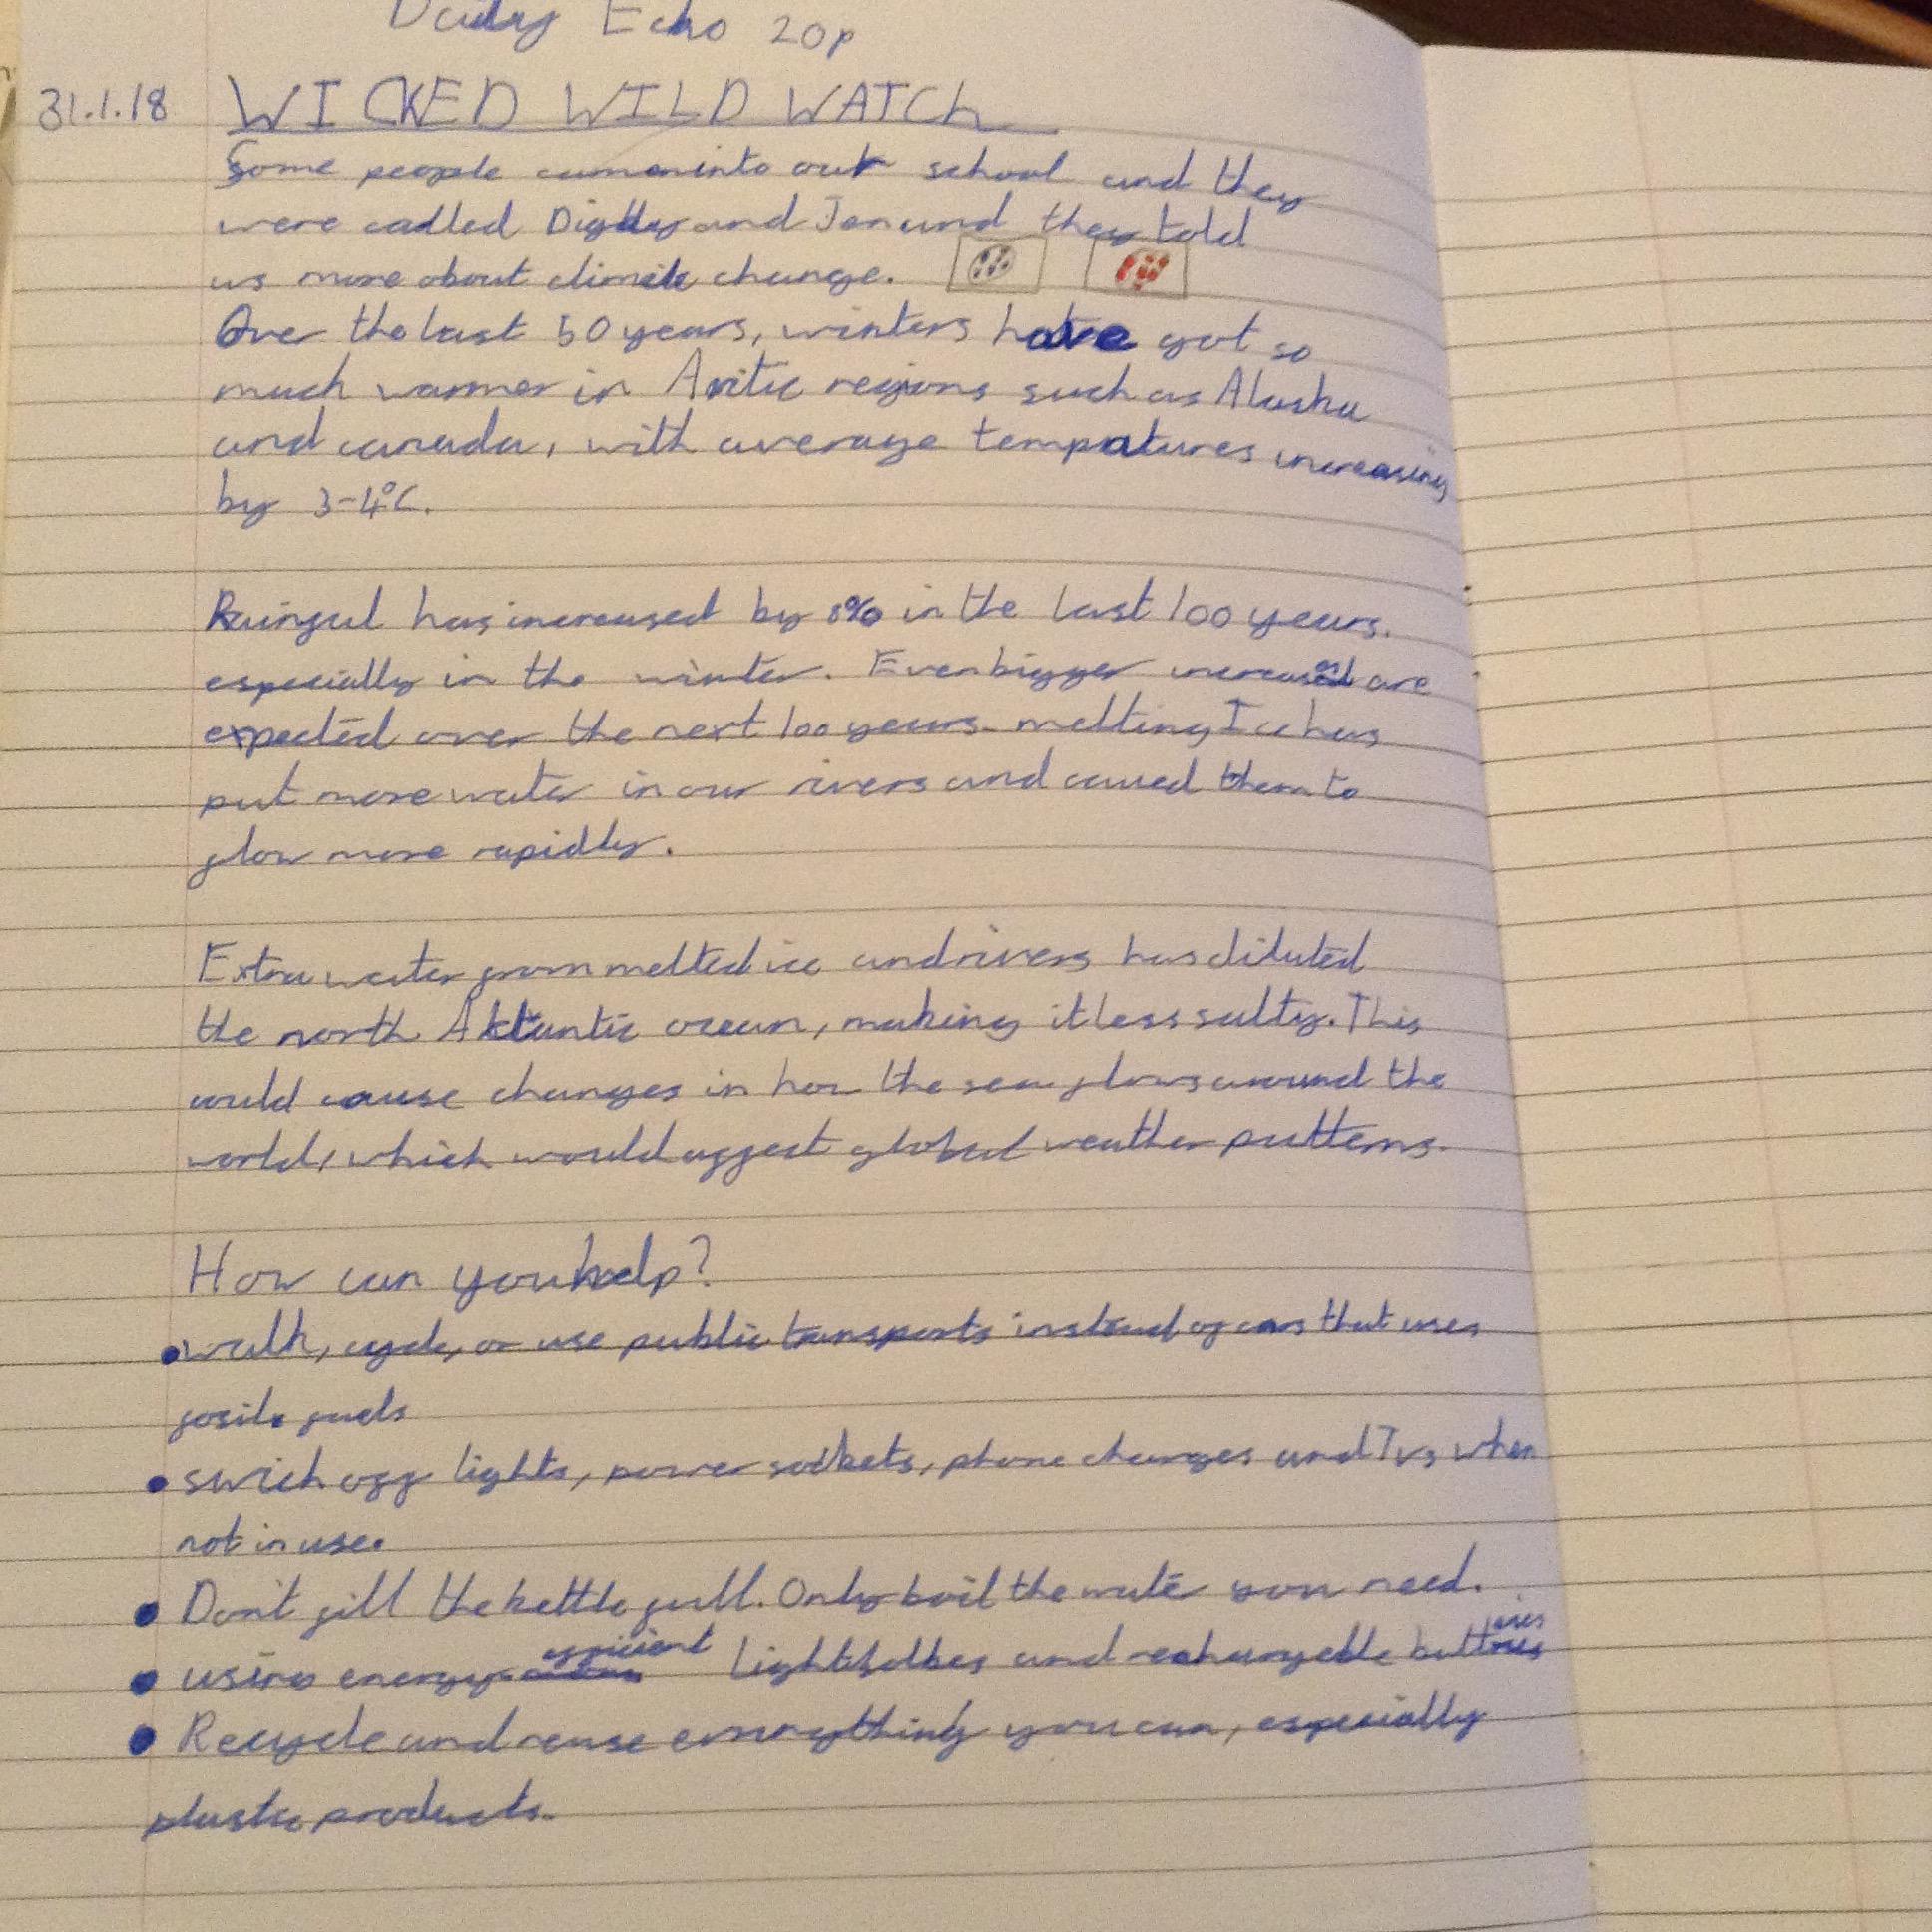 Daily Echo 20p
31.1.18 WICKED WILD WATCh
Some people came into our school and they
were called Digby and Jen and they told
us more about climate change.
Over the last 50 years, winters have got so
much warmer in Arctic regions such as Alaska
and canada, with average tempratures increasing
by 3-4°C.
Rainfal has increased by 8% in the last 100 years.
especially in the winter. Even bigger increases are
expected over the next 100 years. melting Ice has
put more water in our rivers and caused them to
flow more rapidly.
Extra water from melted ice and rivers has diluted
the north Atlantic ocean, making it less salty. This
could cause changes in how the sea flows around the
world, which would affect global weather patterns.
How can you help?
• walk, cycle, or use public transports instead of cars that uses
fosile fuels
• swich off lights, power sockets, phone charges and Tvs when
not in use.
• Don't fill the kettle full. Only boil the water you need.
• using energy efficient Lightbulbes and rechargeble batteries
• Recycle and reuse everything you can, especially
plastic products.